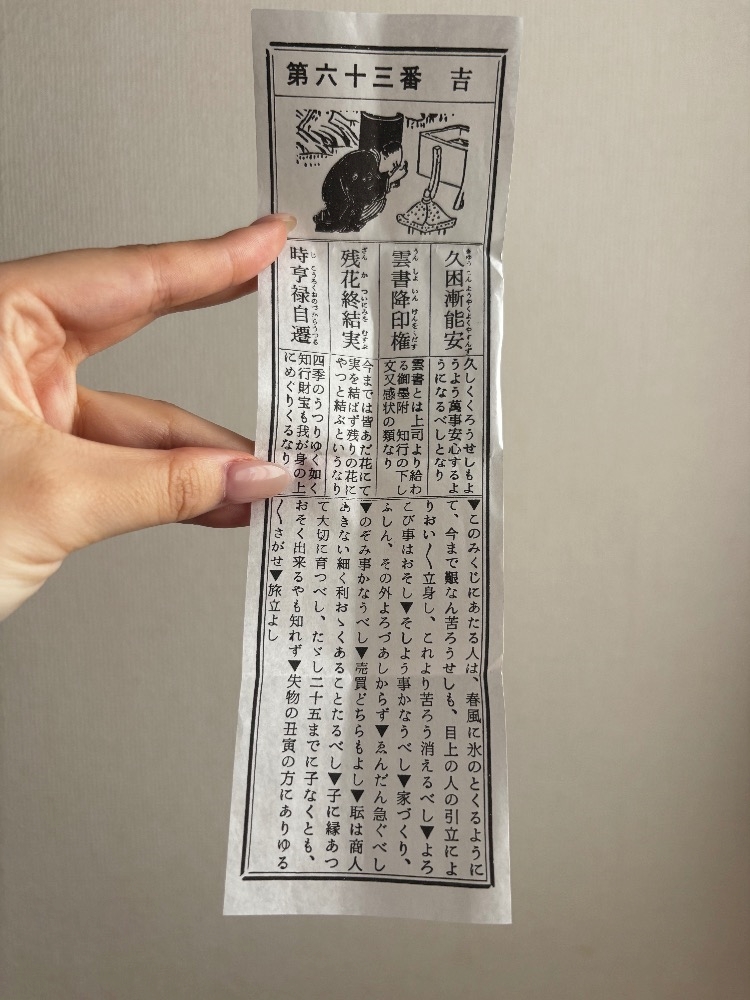 第六十三番　吉
久困漸能安
雲書降印権
残花終結実
時亨禄自遷
久しくくろうせしもよ
うよう萬事安心するよ
うになるべしとなり
雲書とは上司より給わ
る御墨附　知行の下し
文又感状の類なり
今までは皆あだ花にて
実を結ばず残りの花に
やつと結ぶというなり
四季のうつりゆく如く
知行財宝も我が身の上
にめぐりくるなり
▼このみくじにあたる人は、春風に氷のとくるように
て、今まで艱なん苦ろうせしも、目上の人の引立によ
りおい〳〵立身し、これより苦ろう消えるべし▼よろ
こび事はおそし▼そしよう事かなうべし▼家づくり、
ふしん、その外よろづあしからず▼ゑんだん急ぐべし
▼のぞみ事かなうべし▼売買どちらもよし▼耺は商人
あきない細く利おゝくあることたるべし▼子に縁あつ
て大切に育つべし、たゞし二十五までに子なくとも、
おそく出来るやも知れず▼失物の丑寅の方にありゆる
〳〵さがせ▼旅立よし